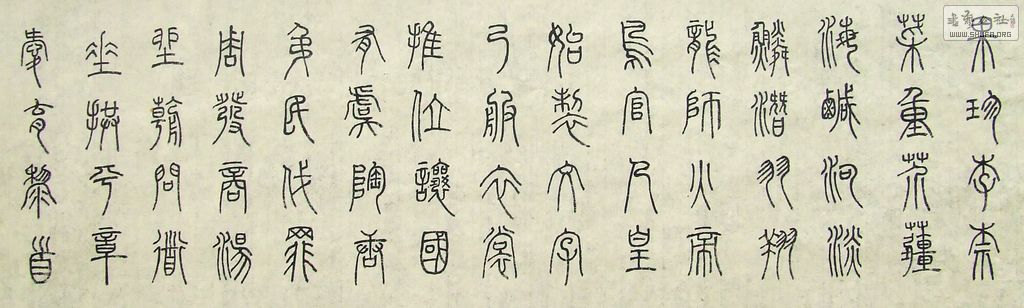 果珍李柰
菜重芥薑
海鹹河淡
鱗潛羽翔
龍師火帝
鳥官人皇
始製文字
乃服衣裳
推位讓國
有虞陶唐
弔民伐罪
周發商湯
坐朝問道
垂拱平章
愛育黎首
WWW.SHUFA.ORG